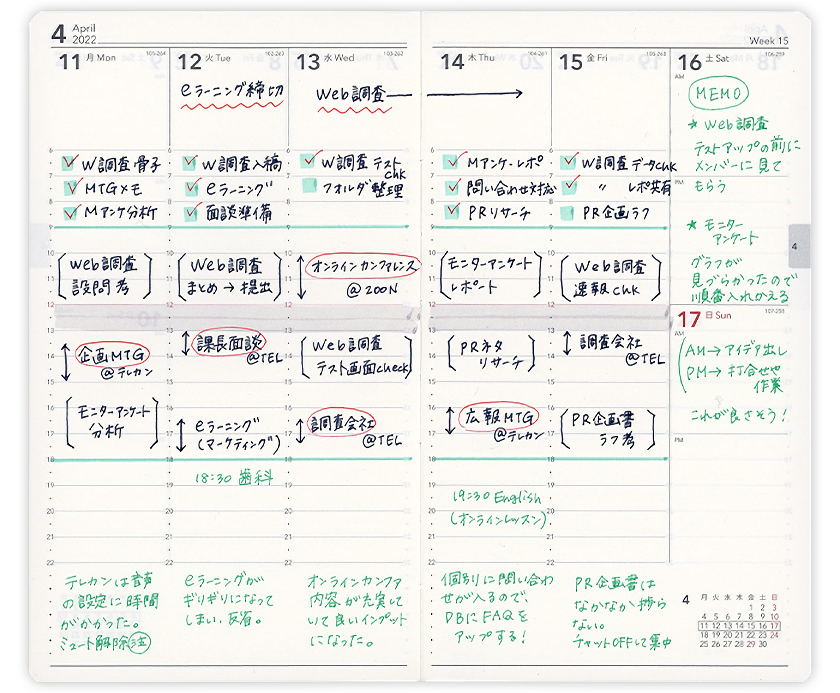 4 April
2022
11 月 Mon
101-264
W調査骨子
MTGメモ
Mアンケ分析
Web調査
設問考
企画MTG
@テレカン
モニターアンケート
分析
テレカンは音声
の設定に時間
がかかった。
ミュート解除 注
12 火 Tue
102-263
eラーニング締切
W調査入稿
eラーニング
面談準備
Web調査
まとめ→提出
課長面談
@TEL
eラーニング
(マーケティング)
18:30 歯科
eラーニングが
ギリギリになって
しまい、反省。
13 水 Wed
103-262
Web調査
W調査 テスト
chk
フォルダ整理
オンラインカンファレンス
@ZOON
Web調査
テスト画面check
調査会社
@TEL
オンラインカンファ
内容が充実して
いて良いインプット
になった。
6
7
8
9
10
11
12
13
14
15
16
17
18
19
20
21
22
Week 15
14 木 Thu
104-261
Mアンケ・レポ
問い合わせ対応
PRリサーチ
モニターアンケート
レポート
PRネタ
リサーチ
広報MTG
@テレカン
19:30 English
(オンラインレッスン)
個別に問い合わ
せが入るので、
DBにFAQを
アップする!
15 金 Fri
105-260
W調査データchk
〃 レポ共有
PR企画ラフ
Web調査
速報chk
調査会社
@TEL
PR企画書
ラフ考
PR企画書は
なかなか捗ら
ない。
チャットOFFして集中
16 土 Sat
106-259
AM
MEMO
★ Web調査
テストアップの前に
メンバーに見て
もらう
PM
★ モニター
アンケート
グラフが
見づらかったので
順番入れかえる
4
17 日 Sun
107-258
AM
AM→アイデア出し
PM→打合せや
作業
これが良さそう!
PM
4
月 火 水 木 金 土 日
1 2 3
4 5 6 7 8 9 10
11 12 13 14 15 16 17
18 19 20 21 22 23 24
25 26 27 28 29 30